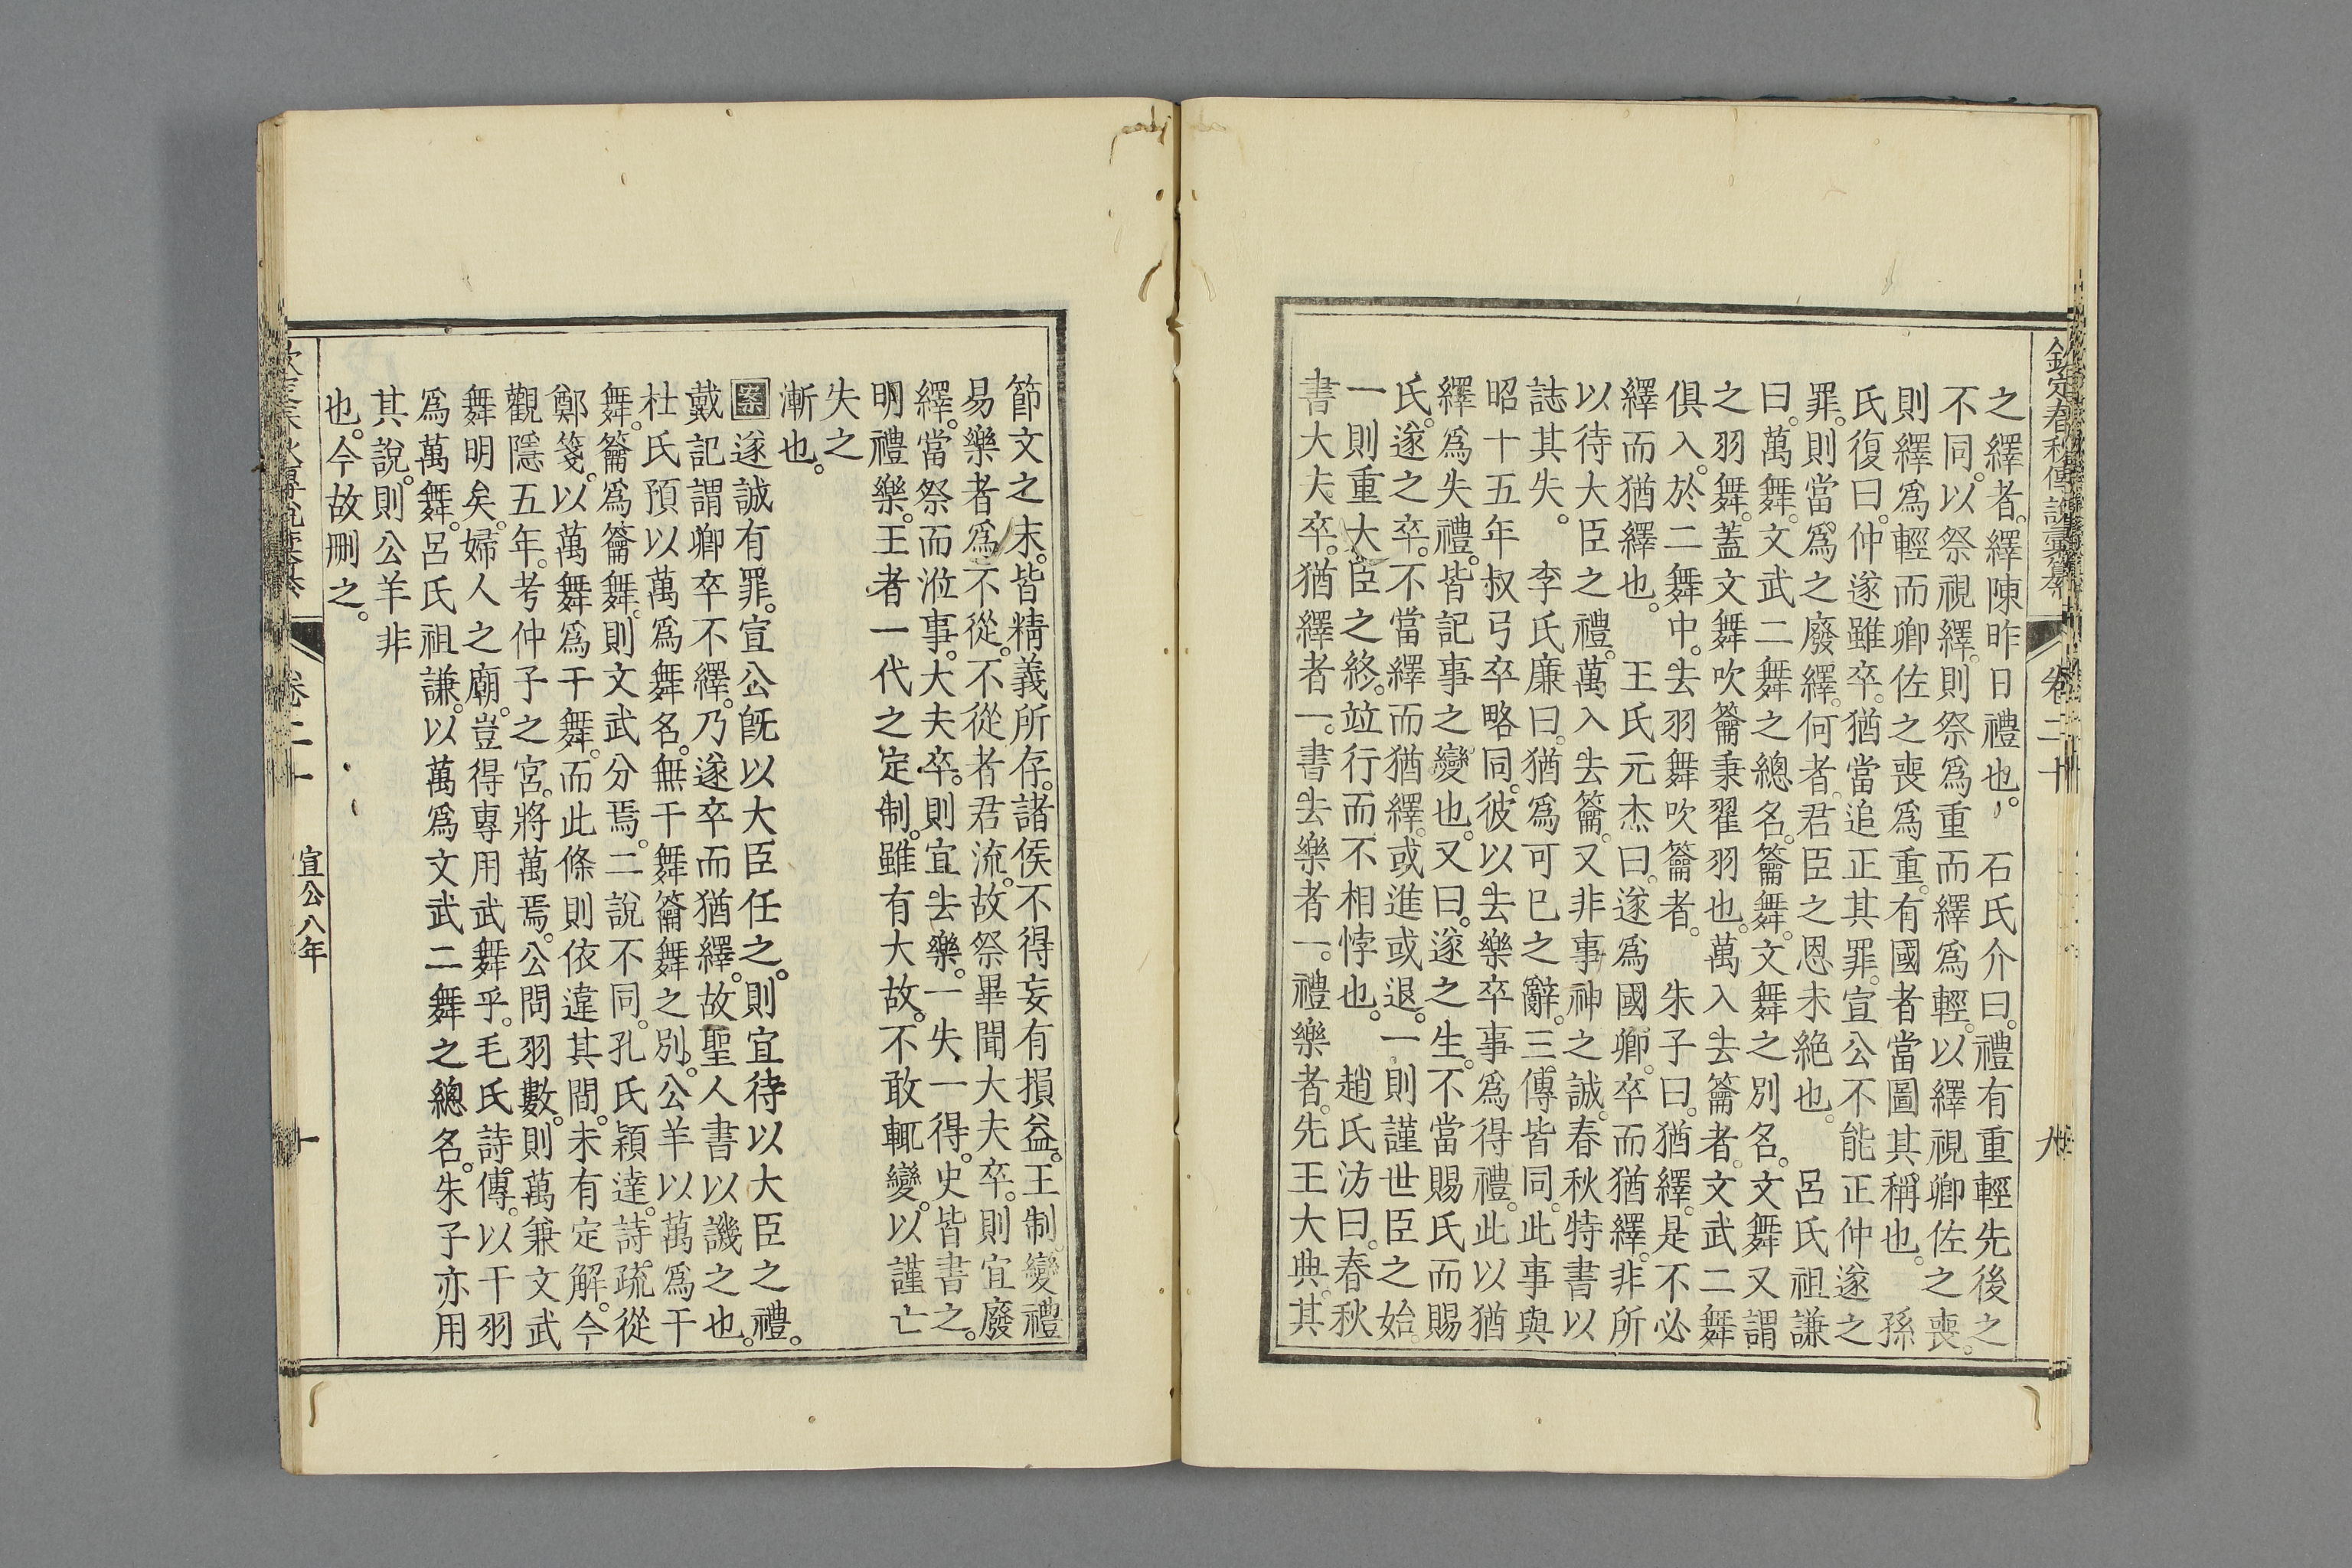 欽定春秋傳說彙纂
卷二十
九
之繹者。繹陳昨日禮也。　石氏介曰。禮有重輕先後之
不同。以祭視繹。則祭爲重而繹爲輕。以繹視卿佐之喪。
則繹爲輕而卿佐之喪爲重。有國者當圖其稱也。　孫
氏復曰。仲遂雖卒。猶當追正其罪。宣公不能正仲遂之
罪。則當爲之廢繹。何者。君臣之恩未絶也。　呂氏祖謙
曰。萬舞。文武二舞之總名。籥舞。文舞之別名。文舞又謂
之羽舞。蓋文舞吹籥秉翟羽也。萬入去籥者。文武二舞
俱入。於二舞中。去羽舞吹籥者。　朱子曰。猶繹。是不必
繹而猶繹也。　王氏元杰曰。遂爲國卿。卒而猶繹。非所
以待大臣之禮。萬入去籥。又非事神之誠。春秋特書以
誌其失。　李氏廉曰。猶爲可已之辭。三傳皆同。此事與
昭十五年叔弓卒略同。彼以去樂卒事爲得禮。此以猶
繹爲失禮。皆記事之變也。又曰。遂之生。不當賜氏而賜
氏。遂之卒。不當繹而猶繹。或進或退。一則謹世臣之始。
一則重大臣之終。竝行而不相悖也。　趙氏汸曰。春秋
書大夫卒。猶繹者一。書去樂者一。禮樂者。先王大典。其
節文之末。皆精義所存。諸侯不得妄有損益。王制。變禮
易樂者爲不從。不從者君流。故祭畢聞大夫卒。則宜廢
繹。當祭而涖事。大夫卒。則宜去樂。一失一得。史皆書之。
明禮樂。王者一代之定制。雖有大故。不敢輒變。以謹亡
失之
漸也。
案遂誠有罪。宣公旣以大臣任之。則宜待以大臣之禮。
戴記謂卿卒不繹。乃遂卒而猶繹。故聖人書以譏之也。
杜氏預以萬爲舞名。無干舞籥舞之別。公羊以萬爲干
舞。籥爲籥舞。則文武分焉。二說不同。孔氏穎達詩疏從
鄭箋。以萬舞爲干舞。而此條則依違其間。未有定解。今
觀隱五年。考仲子之宮。將萬焉。公問羽數。則萬兼文武
舞明矣。婦人之廟。豈得專用武舞乎。毛氏詩傳。以干羽
爲萬舞。呂氏祖謙。以萬爲文武二舞之總名。朱子亦用
其說。則公羊非
也。今故刪之。
卷二十
宣公八年
十